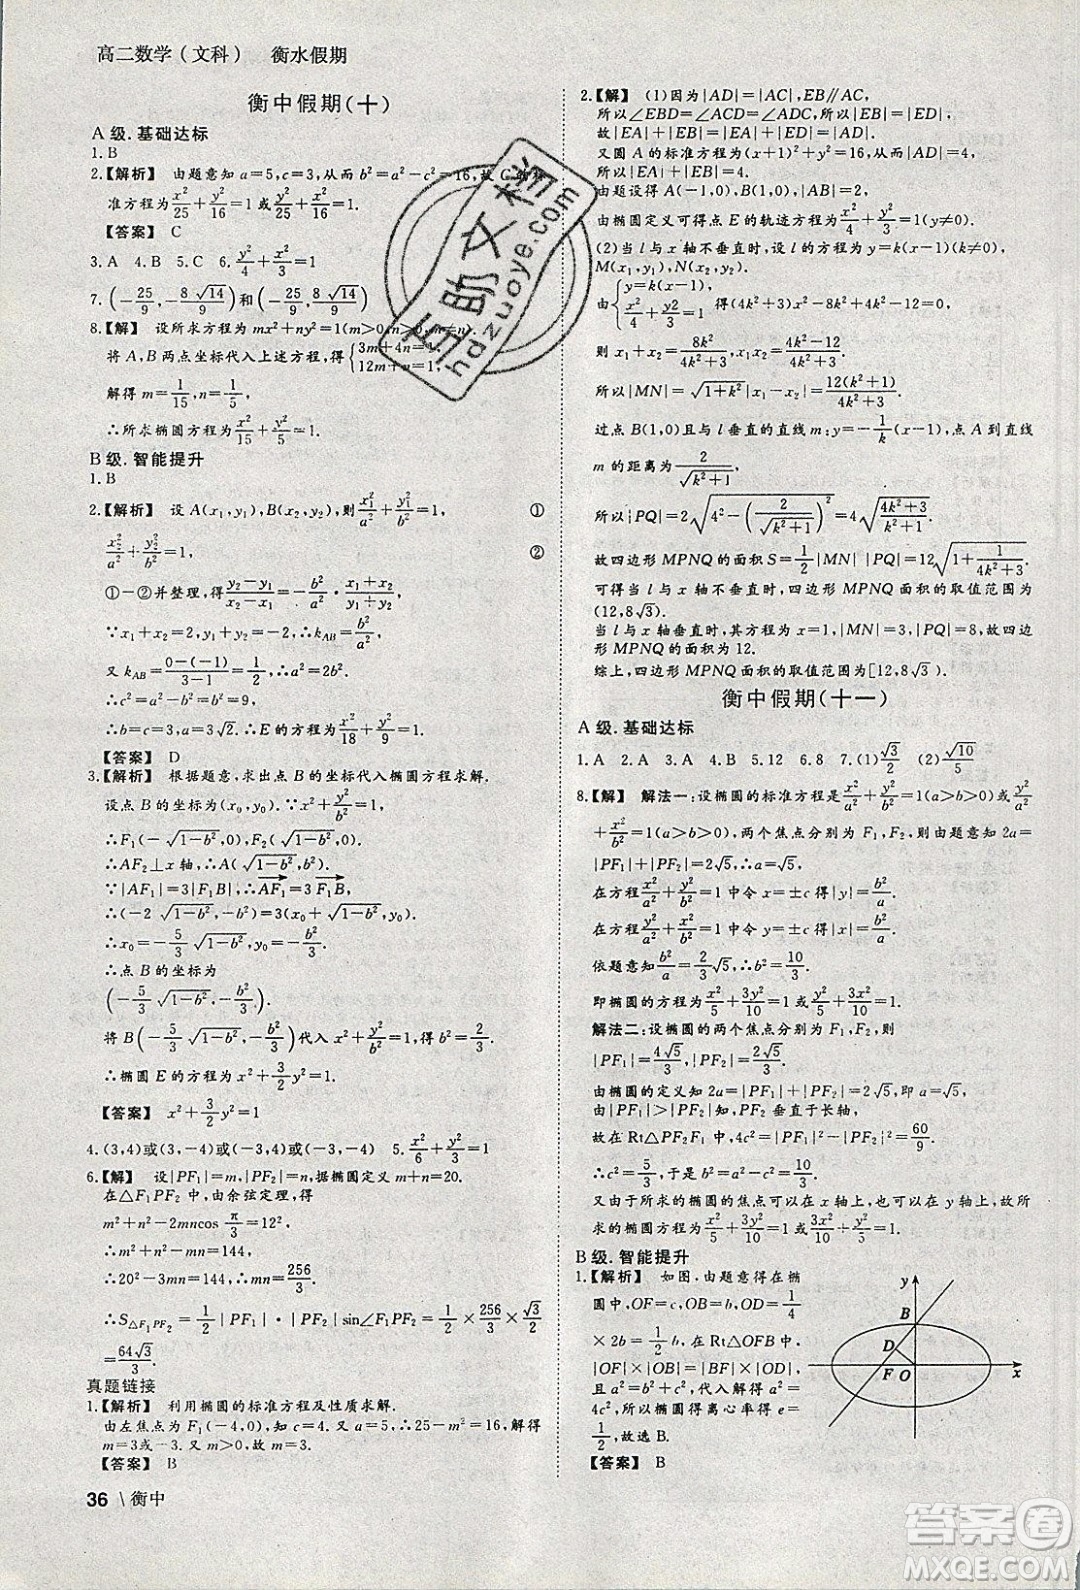 高二数学(文科)　衡水假期
衡中假期(十)
A 级.基础达标
1.B
2.【解析】 由题意知a=5,c=3,从而b²=a²-c²=16,故C的标
准方程为x²/25+y²/16=1或x²/16+y²/25=1.
【答案】 C
3.A 4.B 5.C 6.y²/4+x²/3=1
7.(-25/9,-8√14/9)和(-25/9,8√14/9)
8.【解】 设所求方程为mx²+ny²=1(m>0,n>0,m≠n).
将A,B两点坐标代入上述方程,得{3m+4n=1, 12m+n=1.
解得m=1/15,n=1/5,
∴所求椭圆方程为x²/15+y²/5=1.
B 级.智能提升
1.B
2.【解析】 设A(x₁,y₁),B(x₂,y₂),则x₁²/a²+y₁²/b²=1, ①
x₂²/a²+y₂²/b²=1, ②
①-②并整理,得(y₂-y₁)/(x₂-x₁)=-b²/a²·(x₁+x₂)/(y₁+y₂).
∵x₁+x₂=2,y₁+y₂=-2,∴k_AB=b²/a².
又k_AB=(0-(-1))/(3-1)=1/2,∴b²/a²=1/2.
∴c²=a²-b²=b²=9,
∴b=c=3,a=3√2.∴E的方程为x²/18+y²/9=1.
【答案】 D
3.【解析】 根据题意,求出点B的坐标代入椭圆方程求解.
设点B的坐标为(x₀,y₀).∵x²+y²/b²=1,
∴F₁(-√(1-b²),0),F₂(√(1-b²),0).
∵AF₂⊥x轴,∴A(√(1-b²),b²).
∵|AF₁|=3|F₁B|,∴AF₁=3F₁B,
∴(-2√(1-b²),-b²)=3(x₀+√(1-b²),y₀).
∴x₀=-5/3√(1-b²),y₀=-b²/3.
∴点B的坐标为
(-5/3√(1-b²),-b²/3).
将B(-5/3√(1-b²),-b²/3)代入x²+y²/b²=1,得b²=2/3.
∴椭圆E的方程为x²+3/2y²=1.
【答案】 x²+3/2y²=1
4.(3,4)或(3,-4)或(-3,4)或(-3,-4) 5.x²/6+y²/2=1
6.【解】 设|PF₁|=m,|PF₂|=n,据椭圆定义m+n=20.
在△F₁PF₂中,由余弦定理得
m²+n²-2mncos π/3=12²,
∴m²+n²-mn=144,
∴20²-3mn=144,∴mn=256/3.
∴S△F₁PF₂=1/2|PF₁|·|PF₂|sin∠F₁PF₂=1/2×256/3×√3/2
=64√3/3.
真题链接
1.【解析】 利用椭圆的标准方程及性质求解.
由左焦点为F₁(-4,0)知c=4.又a=5,∴25-m²=16,解得
m=3或-3.又m>0,故m=3.
【答案】 B
2.【解】 (1)因为|AD|=|AC|,EB∥AC,
所以∠EBD=∠ACD=∠ADC,所以|EB|=|ED|,
故|EA|+|EB|=|EA|+|ED|=|AD|.
又圆A的标准方程为(x+1)²+y²=16,从而|AD|=4,
所以|EA|+|EB|=4.
由题设得A(-1,0),B(1,0),|AB|=2,
由椭圆定义可得点E的轨迹方程为x²/4+y²/3=1(y≠0).
(2)当l与x轴不垂直时,设l的方程为y=k(x-1)(k≠0),
M(x₁,y₁),N(x₂,y₂).
由{y=k(x-1), x²/4+y²/3=1 得(4k²+3)x²-8k²x+4k²-12=0,
则x₁+x₂=8k²/(4k²+3),x₁x₂=(4k²-12)/(4k²+3).
所以|MN|=√(1+k²)|x₁-x₂|=12(k²+1)/(4k²+3).
过点B(1,0)且与l垂直的直线m:y=-1/k(x-1),点A到直线
m的距离为2/√(k²+1),
所以|PQ|=2√(4²-(2/√(k²+1))²)=4√((4k²+3)/(k²+1)).
故四边形MPNQ的面积S=1/2|MN||PQ|=12√(1+1/(4k²+3)).
可得当l与x轴不垂直时,四边形MPNQ面积的取值范围为
(12,8√3).
当l与x轴垂直时,其方程为x=1,|MN|=3,|PQ|=8,故四边
形MPNQ的面积为12.
综上,四边形MPNQ面积的取值范围为[12,8√3).
衡中假期(十一)
A 级.基础达标
1.A 2.A 3.A 4.B 5.12 6.8 7.(1)√3/2 (2)√10/5
8.【解】 解法一:设椭圆的标准方程是x²/a²+y²/b²=1(a>b>0)或y²/a²
+x²/b²=1(a>b>0),两个焦点分别为F₁,F₂,则由题意知2a=
|PF₁|+|PF₂|=2√5,∴a=√5.
在方程x²/a²+y²/b²=1中令x=±c得|y|=b²/a.
在方程y²/a²+x²/b²=1中令y=±c得|x|=b²/a.
依题意知b²/a=2/3√5,∴b²=10/3.
即椭圆的方程为x²/5+3y²/10=1或y²/5+3x²/10=1.
解法二:设椭圆的两个焦点分别为F₁,F₂,则
|PF₁|=4√5/3,|PF₂|=2√5/3.
由椭圆的定义知2a=|PF₁|+|PF₂|=2√5,即a=√5.
由|PF₁|>|PF₂|知,PF₂垂直于长轴,
故在Rt△PF₂F₁中,4c²=|PF₁|²-|PF₂|²=60/9.
∴c²=5/3,于是b²=a²-c²=10/3.
又由于所求的椭圆的焦点可以在x轴上,也可以在y轴上,故所
求的椭圆方程为x²/5+3y²/10=1或3x²/10+y²/5=1.
B 级.智能提升
1.【解析】 如图,由题意得在椭
圆中,OF=c,OB=b,OD=1/4
×2b=1/2b,在Rt△OFB中,
|OF|×|OB|=|BF|×|OD|,
且a²=b²+c²,代入解得a²=
4c²,所以椭圆得离心率得e=
1/2,故选B.
【答案】 B
y
B
D
F O
x
36\衡中
百助文档
hdzuoye.com
答案圈
MXQE.COM